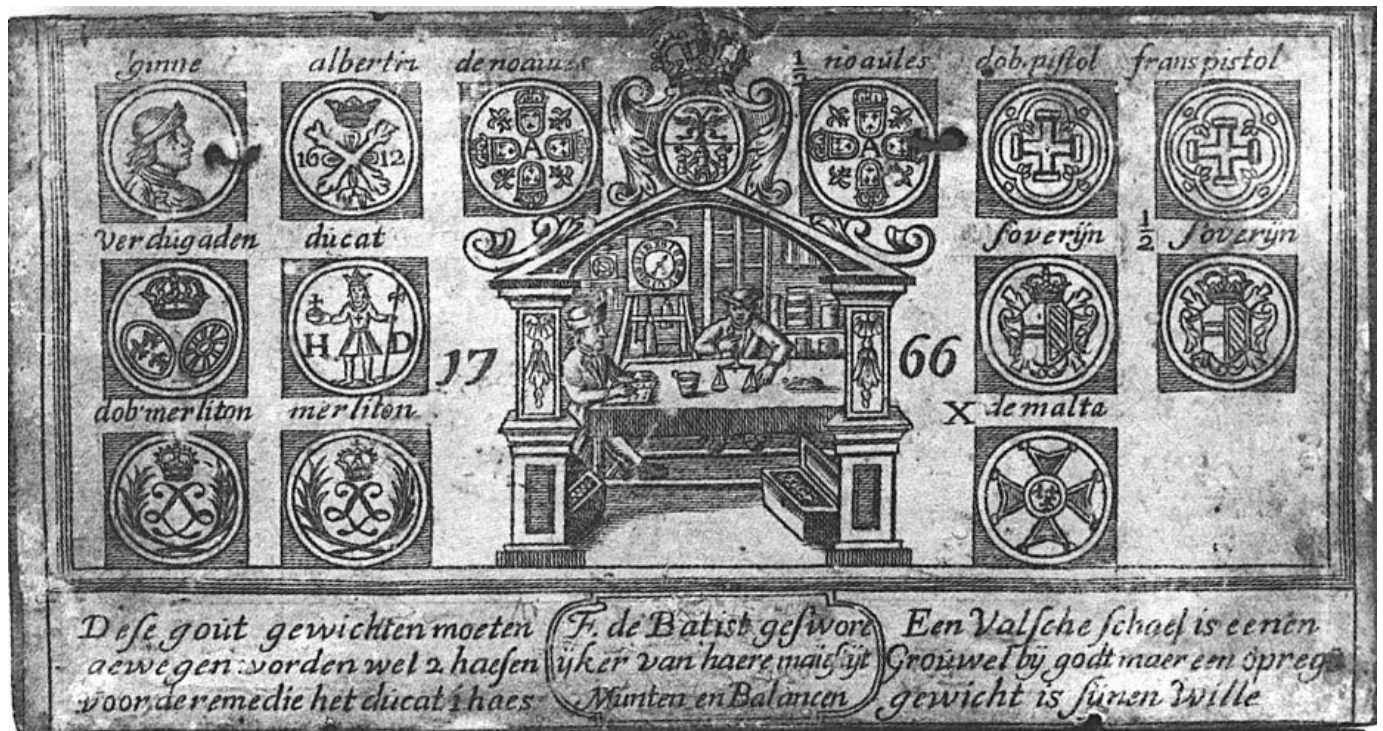 ginne albertri de noaiules ½ noaules dob. pistol frans pistol
A A
16 12
verdugaden ducat soverijn ½ soverijn
H D
17 66
dob merliton merliton X de malta
Dese gout gewichten moeten
gewegen worden wel 2 haesen
voor de remedie het ducat 1 haes
F. de Batist geswore
ijker van haere maiestijt
Munten en Balancen
Een Valsche schael is eenen
Grouwel bij godt maer een opregt
gewicht is sijnen Wille